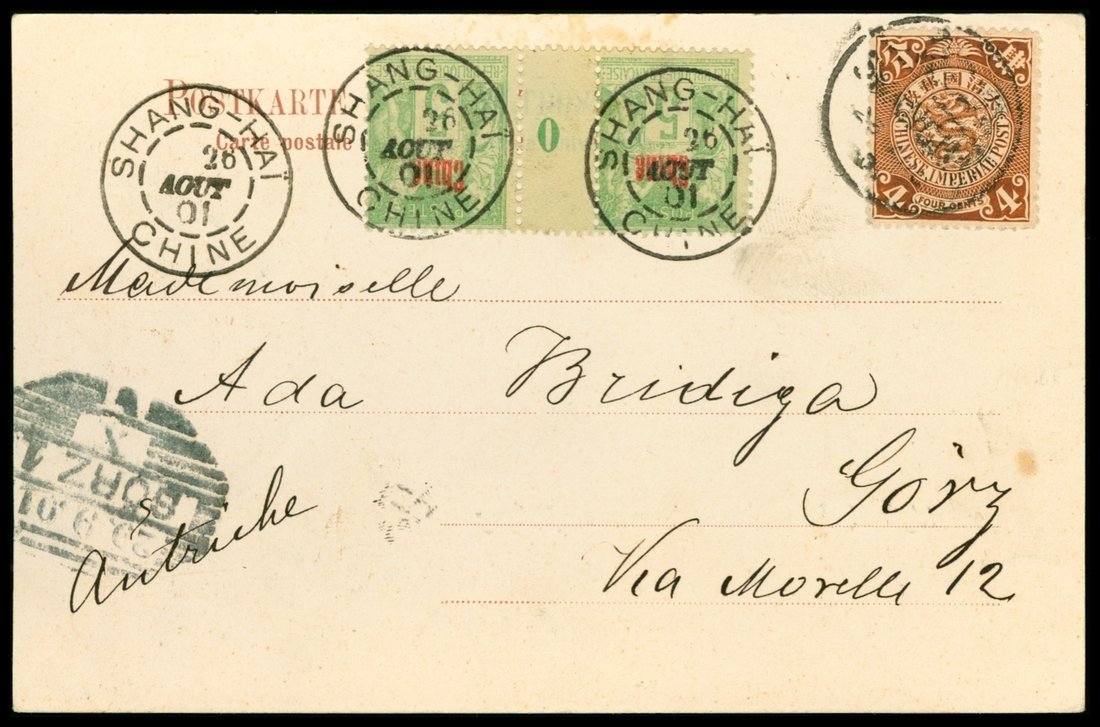 POSTKARTE
Carte postale
SHANG-HAÏ
26
AOUT
01
CHINE
SHANG-HAÏ
26
AOUT
01
CHINE
5
Chine
0
SHANG-HAÏ
26
AOUT
01
CHINE
5
Chine
大清國郵政
肆
CHINESE IMPERIAL POST
4 FOUR CENTS 4
Mademoiselle
Ada Bridiga
Görz
Via Morelli 12
Autriche
GÖRZ 1
29.9.01